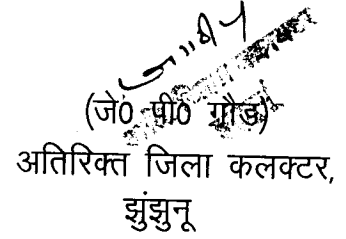 (जे० पी० गौड़)
अतिरिक्त जिला कलक्टर,
झुंझुनू